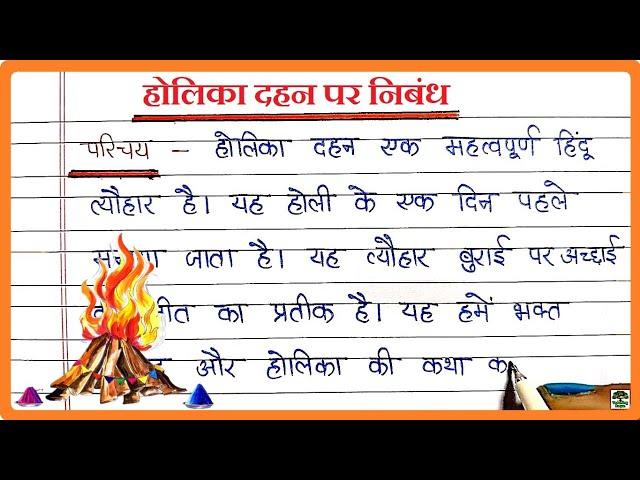 होलिका दहन पर निबंध
परिचय – होलिका दहन एक महत्वपूर्ण हिंदू
त्यौहार है। यह होली के एक दिन पहले
जाता है। यह त्यौहार बुराई पर अच्छाई
का प्रतीक है। यह हमें भक्त
और होलिका की कथा क